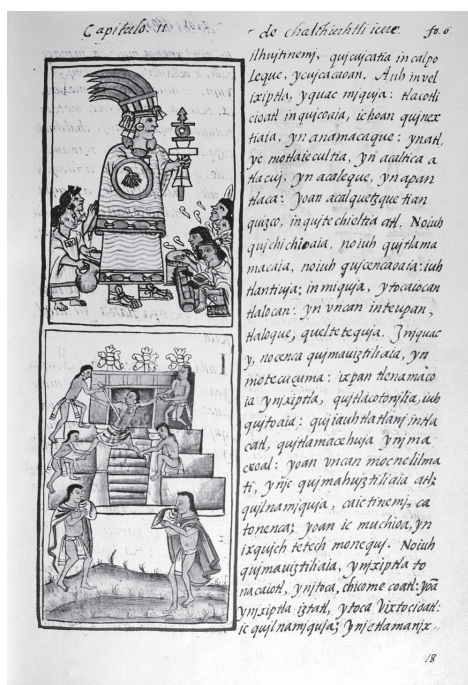 Capitulo. 11
de chalchiuhtli icue.
fo. 6
ilhujtinemj, qujcujcatia in calpo
leque, ycujcacaoan. Auh in vel
ixiptla, yquac mjquja: tlacotli
cioatl in qujcoaia, ichoan qujnex
tiaia, yn anamacaque: yn atl,
yc motlaiecultia, yn acaltica a
tlacuj, yn acaleque, yn apan
tlaca: yoan acalquetzque tian
quizco, in qujtechieltia atl. Noiuh
qujchichioaia, noiuh qujtlama
macaia, noiuh qujcencaoaia: iuh
tlantiuja; in mjquja, ytocaiocan
tlalocan: yn vncan inteupan,
tlaloque, queltetequja. Jn iquac
y, nocenca qujmauiztiliaia, yn
motecuçuma: ixpan tlenamaco
ia yn jxiptla, qujtlacotonjlia, iuh
qujtoaia: qujiauhtlatlanj in tla
catl, qujtlamacehuja yn ma
ceoal: yoan vncan mocnelilma
ti, ynjc qujmahujztiliaia atl:
qujlnamjquja, ca ic tinemj, ca
tonenca; yoan ic muchioa, yn
ixqujch tetech monequj. Noiuh
qujmauiztiliaia, yn jxiptla to
nacaiotl, yn jtoca, chicome coatl: yoã
yn jxiptla iztatl, ytoca Vixtocioatl:
ic qujlnamjquja; ynje tlamanjx-
18